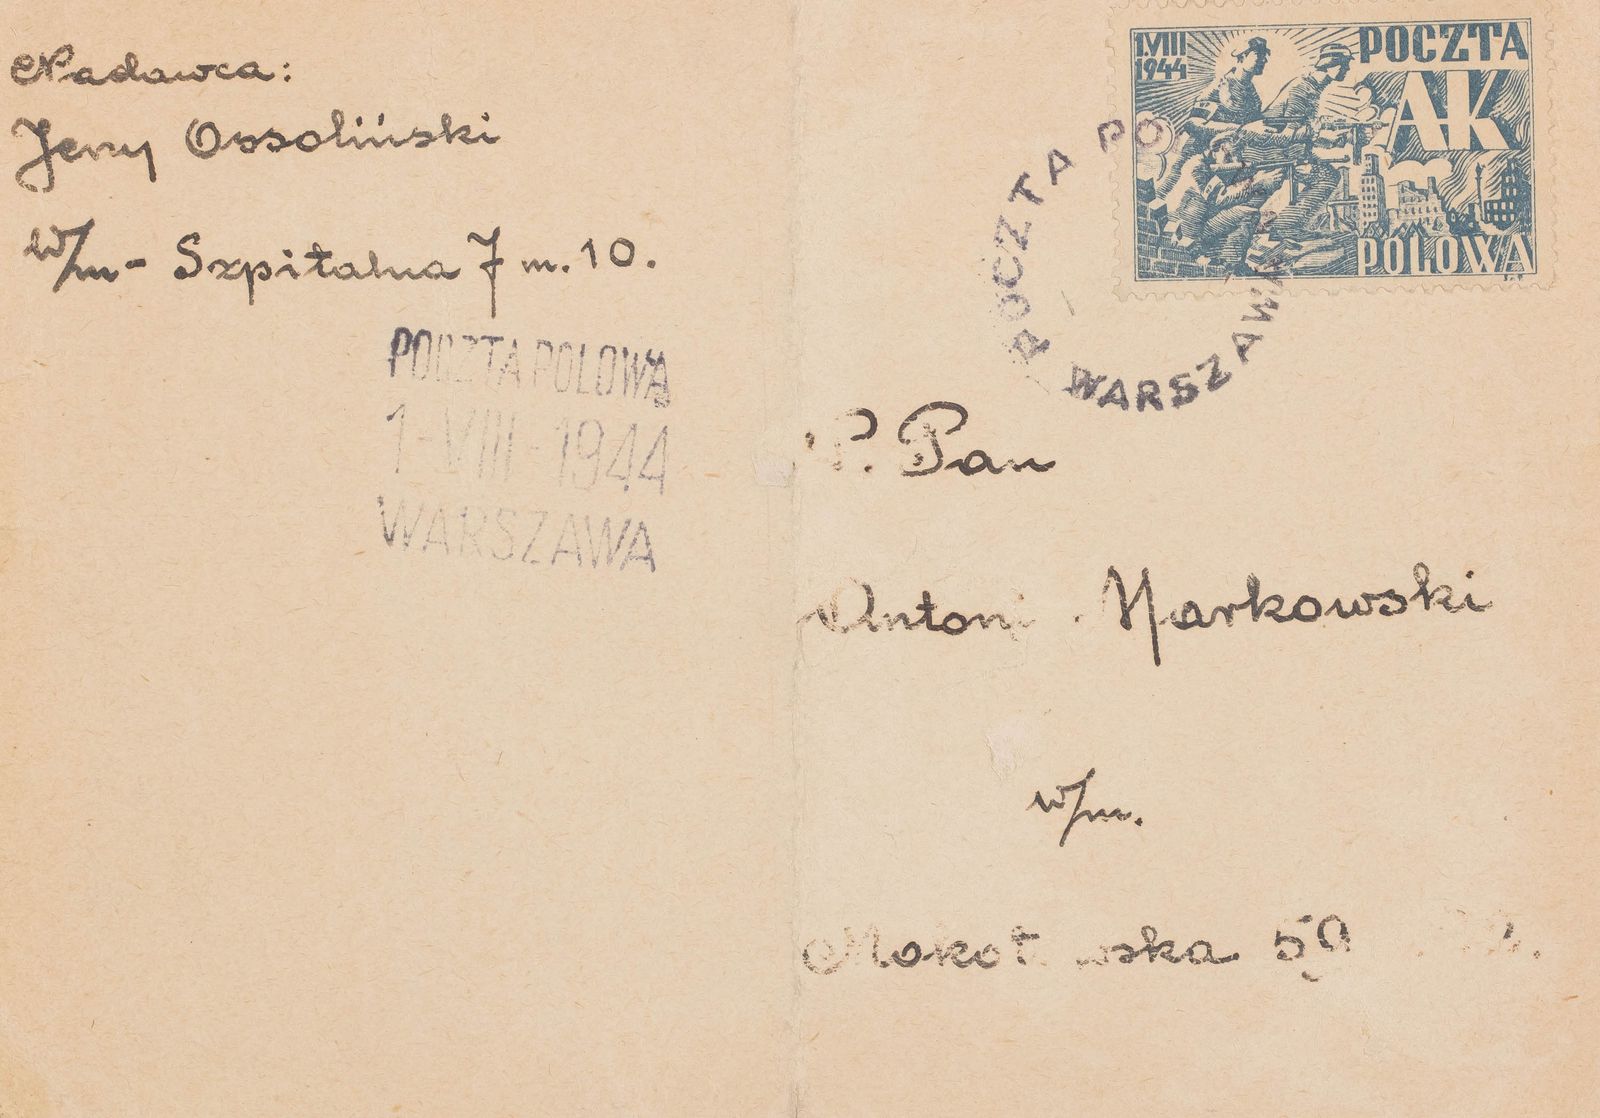 Nadawca:
Jerzy Ossoliński
w/m - Szpitalna 7 m. 10.
POCZTA POLOWA
1-VIII-1944
WARSZAWA
1.VIII
1944
POCZTA
AK
POLOWA
POCZTA PO
WARSZAWA
P. Pan
Antoni Markowski
w/m.
Mokotowska 59